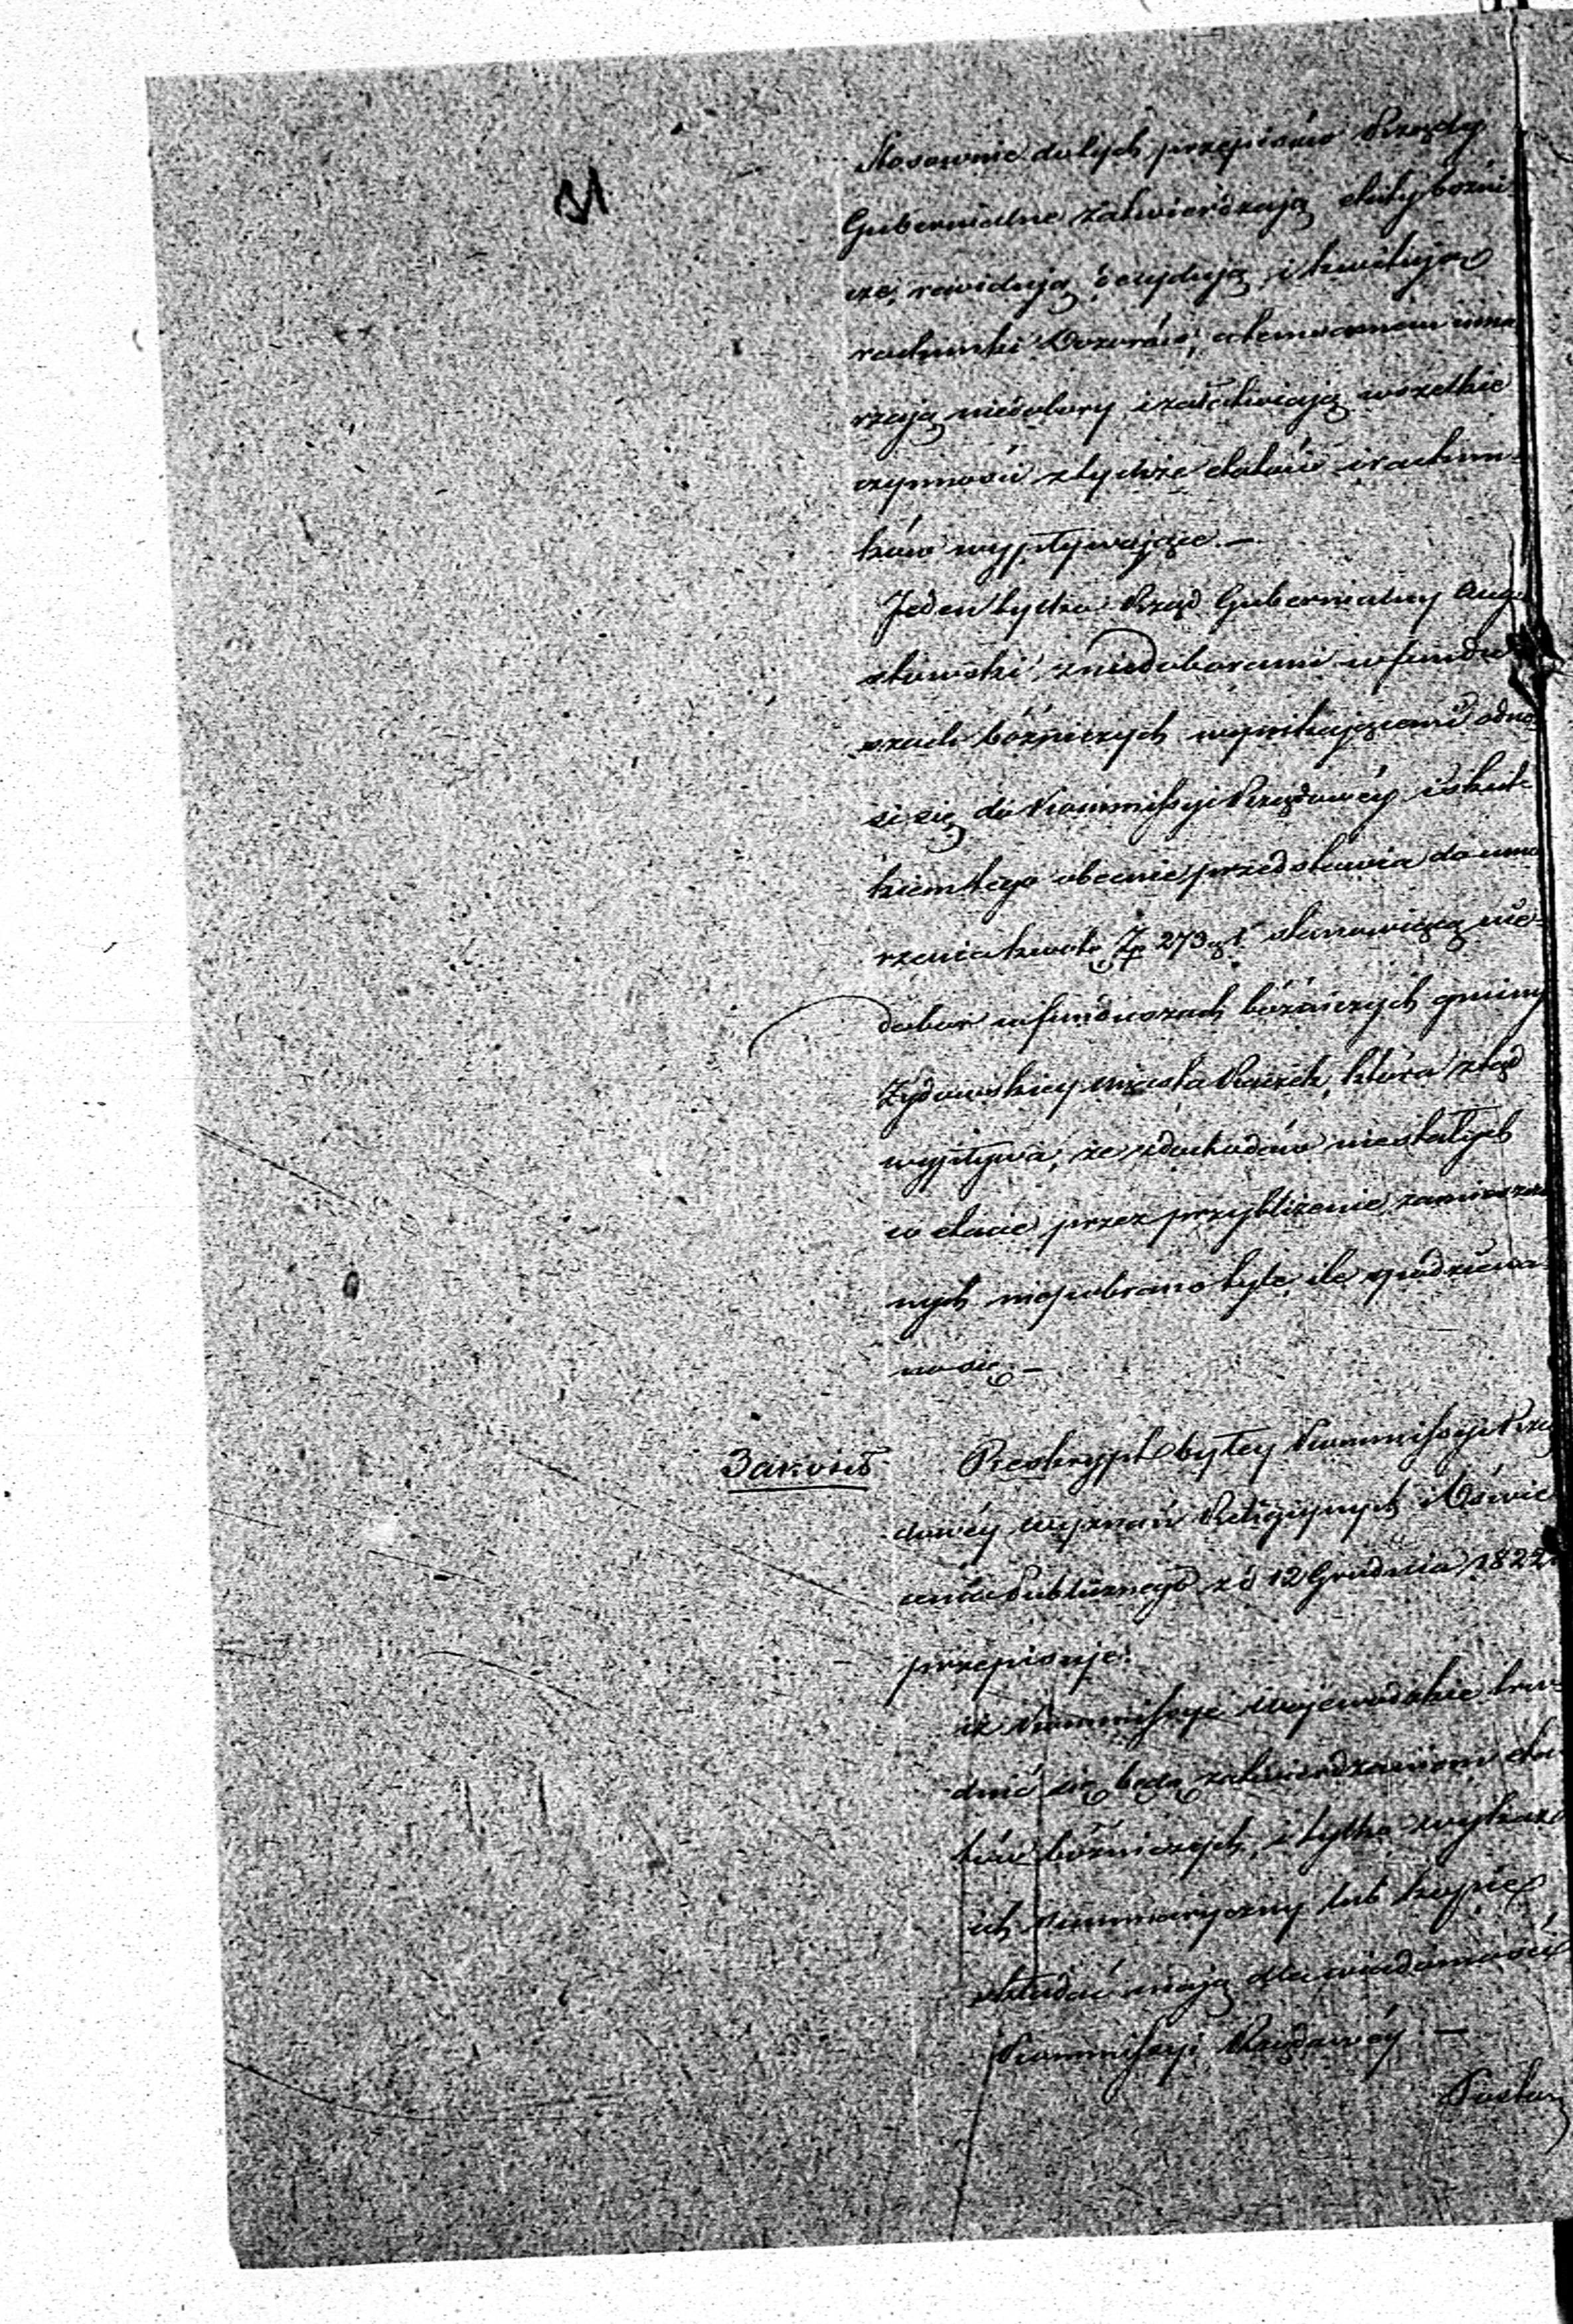 Stosownie do tych przepisów Rządy
Gubernialne zatwierdzają etaty bożni
cze, rewidują, decydują i kwitują
rachunki Dozorów, a temsamem uma
rzają niedobory i załatwiają wszelkie
czynności z tychże etatów i rachun-
ków wypływające. —
Jeden tylko Rząd Gubernialny Augu
stowski, z niedoborami w fundu
szach bóżniczych wynikającemi odno
si się do Kommissyi Rządowéy i skut-
kiem tego obecnie przedstawia do umo
rzenia kwotę Zp 273 g 1 stanowiącą nie-
dobór w funduszach bóżniczych gminy
Żydowskiey miasta Raczek, która ztąd
wypływa, że z dochodów niestałych
w etacie przez przybliżenie zamieszczo
nych niepobrano tyle, ile spodziewa-
no się. —
Законъ
Reskrypt byłey Kommissyi Rzą
dowéy Wyznań Religiynych i Oświe
cenia Publicznego z d 12 Grudnia 1822
przepisuje:
iż Kommissye Wojewódzkie tru-
dnić się będą zatwierdzaniem eta-
tów bóżniczych, i tylko wykaz
ich summaryczny lub kopie
składać mają dla wiadomości
Kommissyi Rządowéy. —